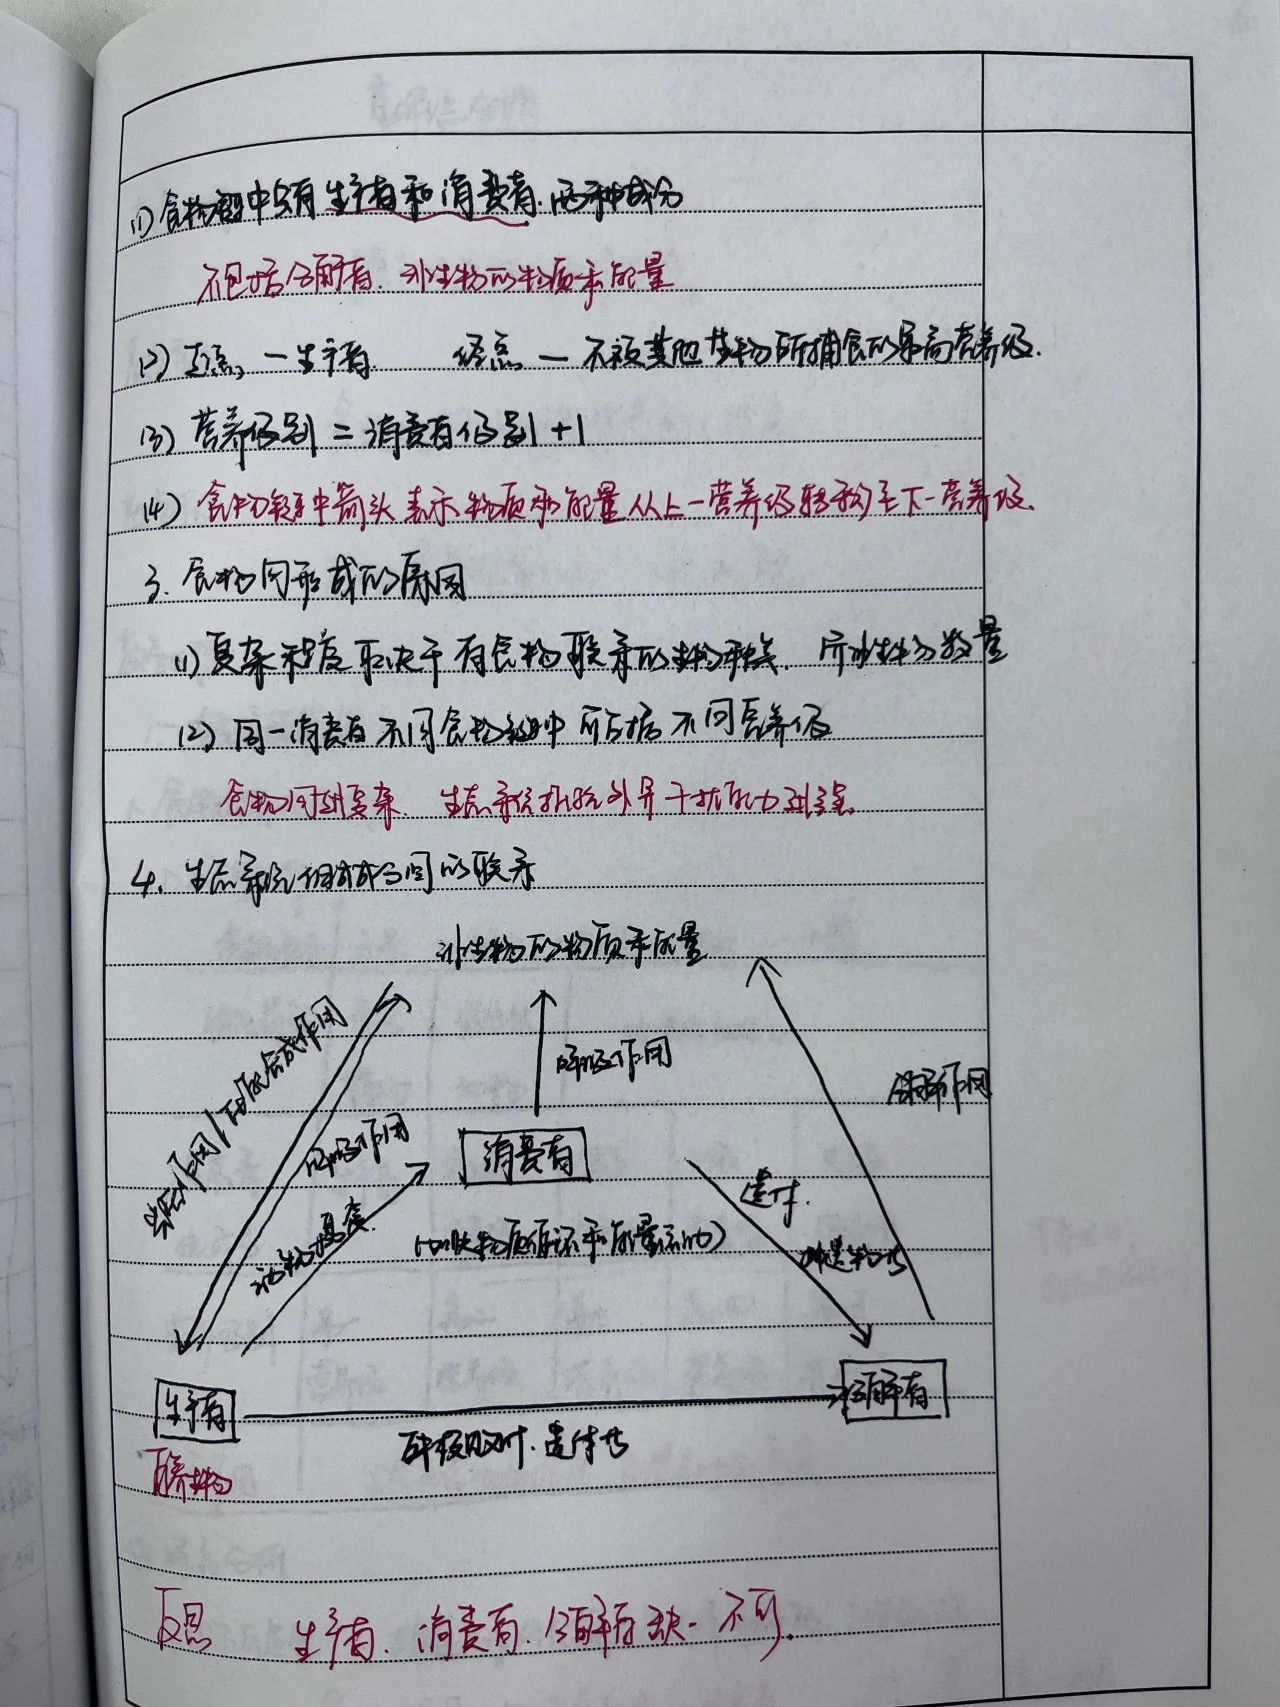 (1) 食物链中只有生产者和消费者.两种成分
不包括分解者.非生物的物质和能量
(2) 起点 — 生产者 终点 — 不被其他生物所捕食的最高营养级.
(3) 营养级别 = 消费者级别 + 1
(4) 食物链中箭头表示物质和能量从上一营养级转移至下一营养级.
3. 食物网形成的原因
(1) 复杂程度取决于有食物联系的生物种类.而非生物数量
(2) 同一消费者不同食物链中所占据不同营养级
食物网越复杂.生态系统抵抗外界干扰能力越强.
4. 生态系统组成成分间的联系
非生物的物质和能量
光合作用/化能合成作用
呼吸作用
呼吸作用
分解作用
消费者
动物摄食
(加快物质循环和能量流动)
遗体.
排遗物等
生产者
分解者
残枝败叶.遗体等
自养生物
反思 生产者.消费者.分解者缺一不可.